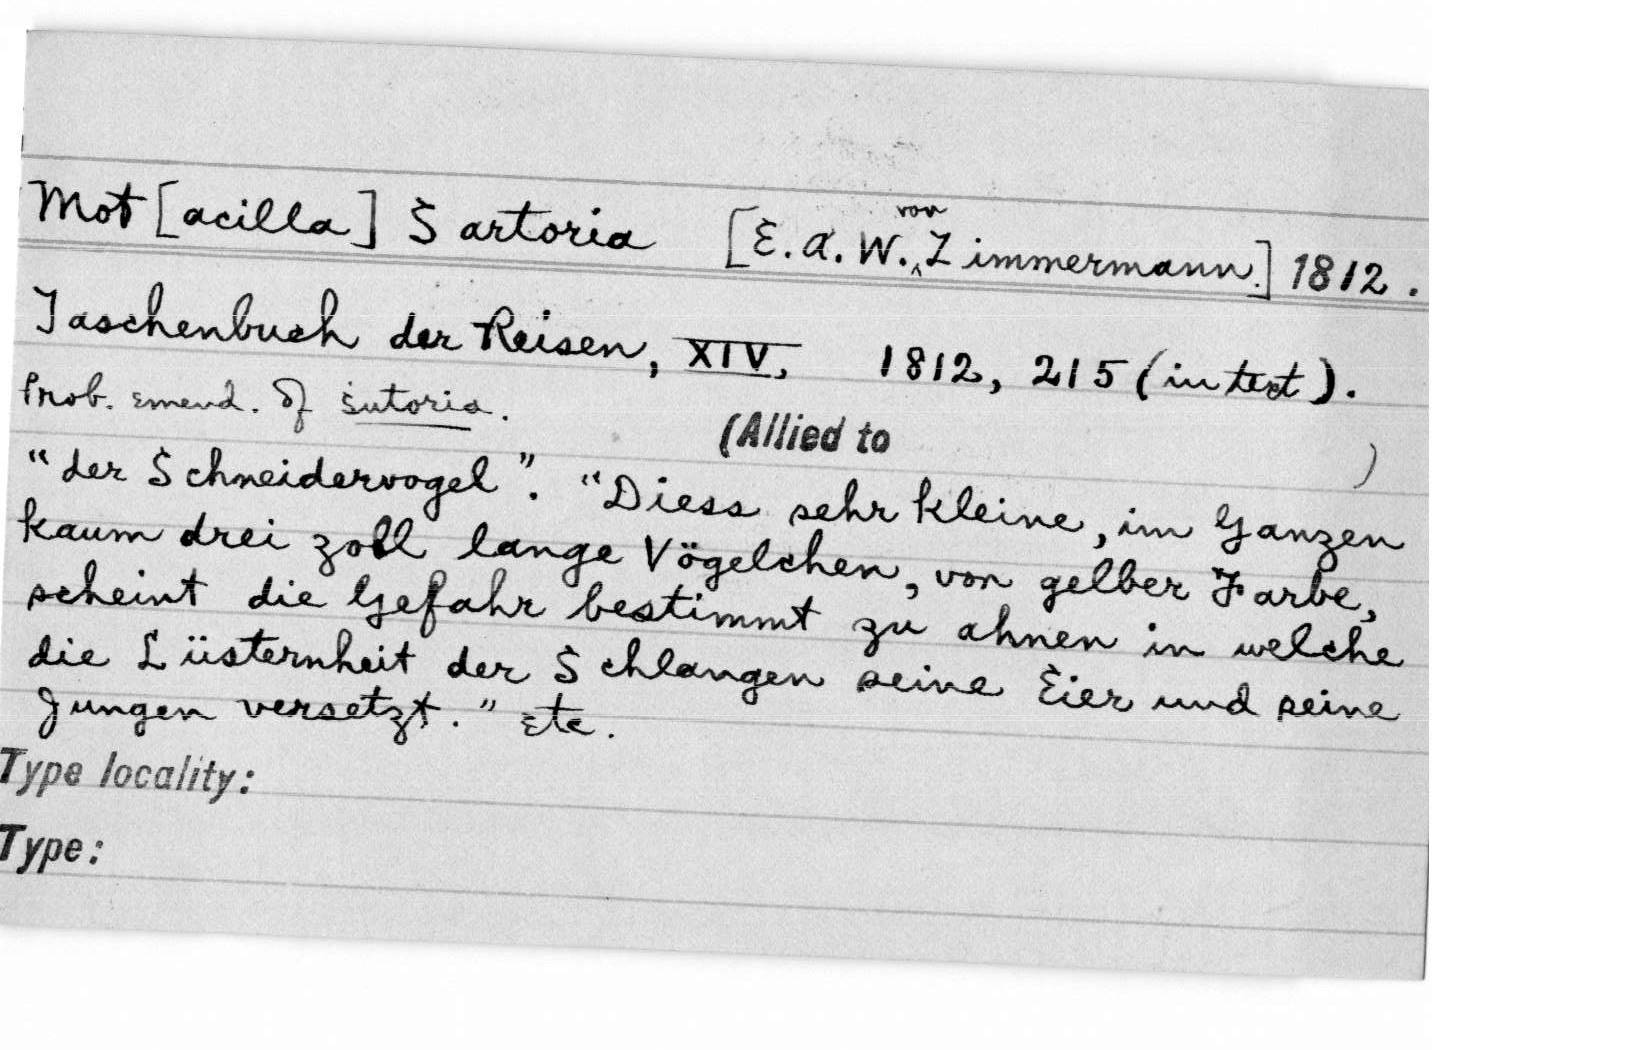 Mot[acilla] Sartoria [E.A.W. von Zimmermann] 1812.
Taschenbuch der Reisen, XIV, 1812, 215 (in text).
Prob. emend. of sutoria.
(Allied to )
"der Schneidervogel". "Diess sehr kleine, im Ganzen
kaum drei zoll lange Vögelchen, von gelber Farbe,
scheint die Gefahr bestimmt zu ahnen in welche
die Lüsternheit der Schlangen seine Eier und seine
Jungen versetzt." Etc.
Type locality:
Type: